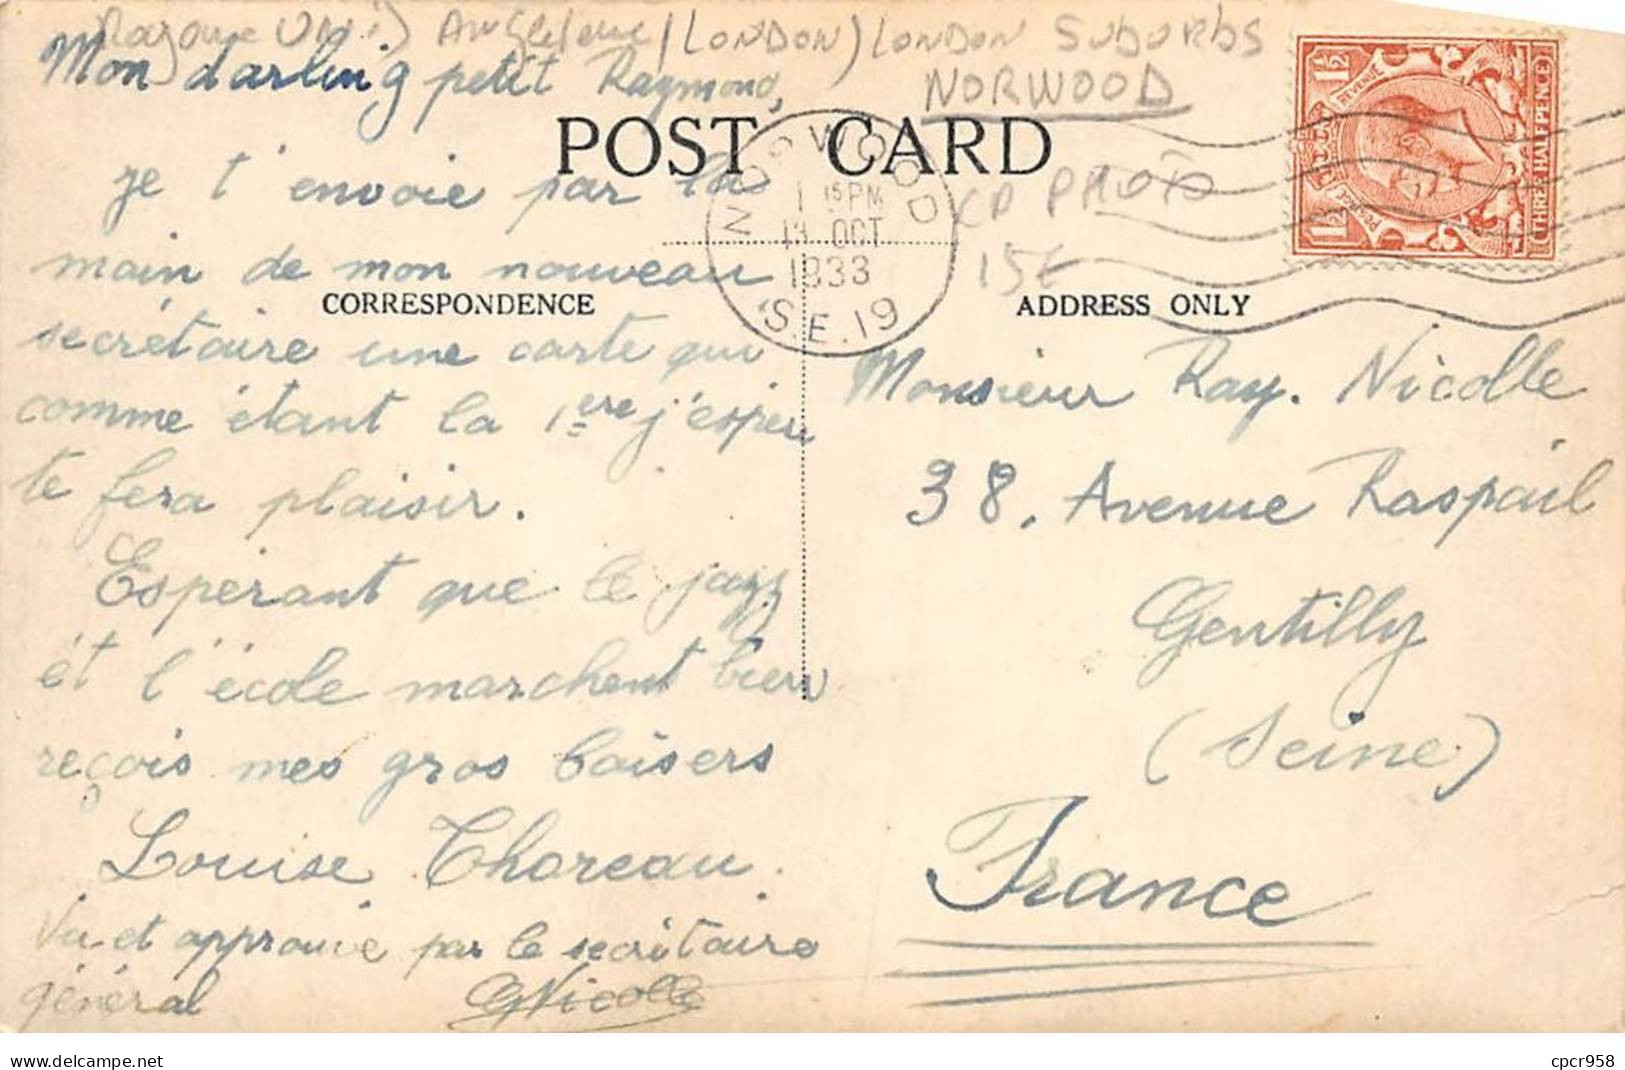 Royaume Uni Angleterre (LONDON) LONDON SUBURBS
NORWOOD
Mon darling petit Raymond,
POST CARD
NORWOOD
1 15 PM
OCT
1933
S.E.19
CP PHOTO
15E
POSTAGE
REVENUE
1½
1½
THREE HALFPENCE
je t'envoie par la
main de mon nouveau
CORRESPONDENCE
secrétaire une carte qui
comme étant la 1ere j'espère
te fera plaisir.
Espérant que le jazz
et l'école marchent bien
reçois mes gros baisers
Louise Thoreau.
Vu et approuvé par le secrétaire
général Nicolle
ADDRESS ONLY
Monsieur Ray. Nicolle
38. Avenue Raspail
Gentilly
(Seine)
France
delcampe.net
cpcr958